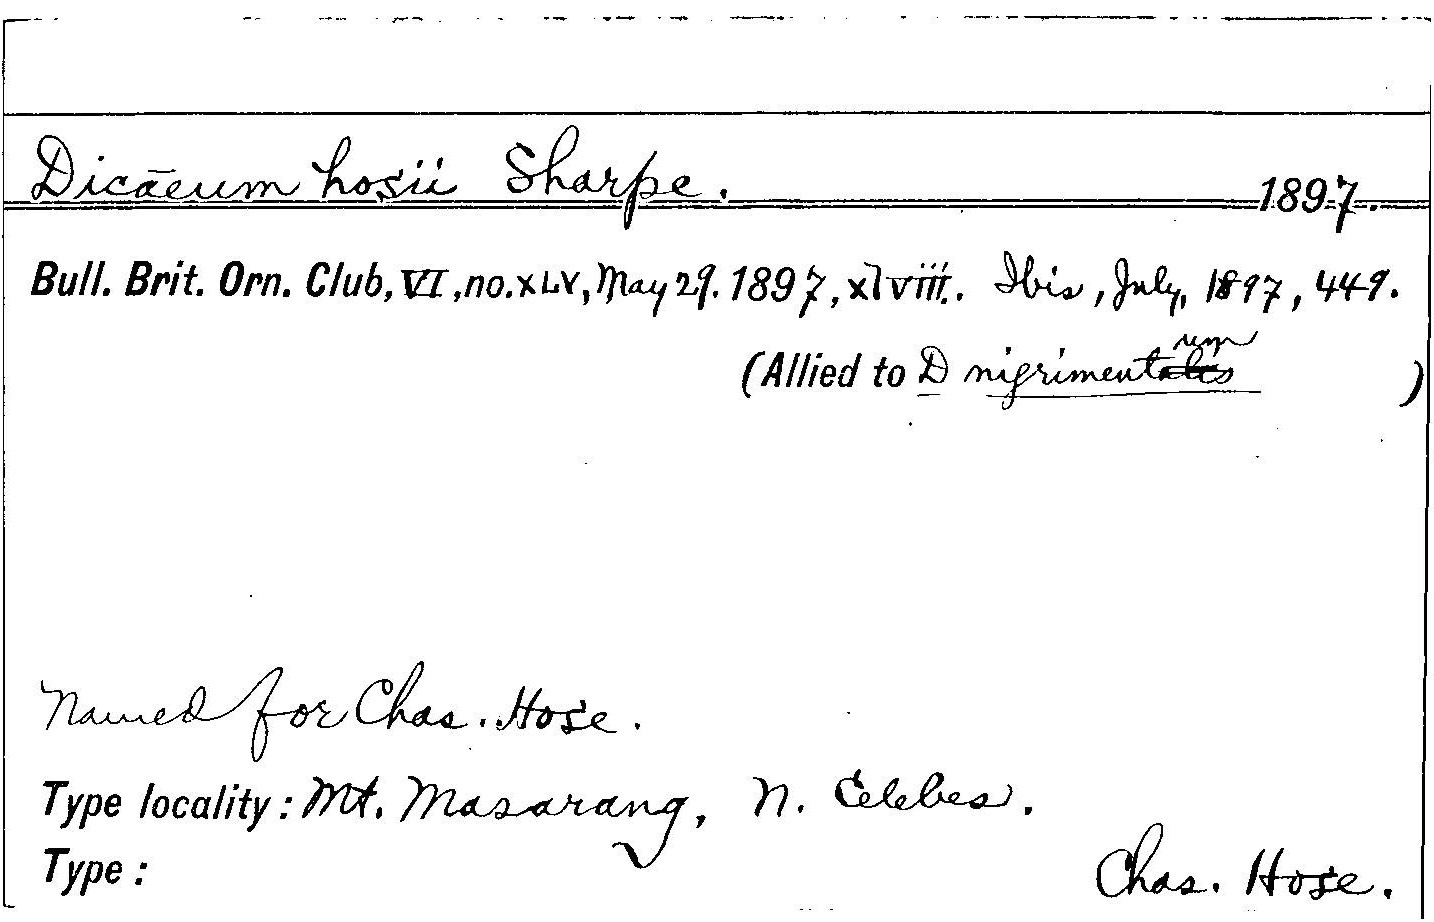 Dicaeum hosii Sharpe. 1897.
Bull. Brit. Orn. Club, VI, no. XLV, May 29. 1897, xlviii. Ibis, July, 1897, 449.
(Allied to D nigrimentum)
Named for Chas. Hose.
Type locality: Mt. Masarang, N. Celebes.
Type: Chas. Hose.